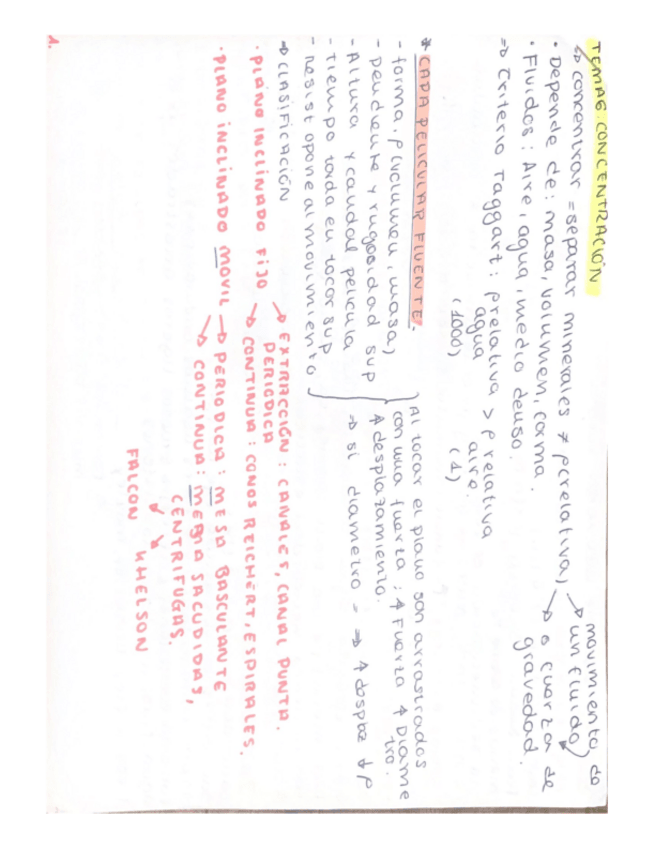 TEMA 6. CONCENTRACIÓN
↳ concentrar = separar minerales ≠ ρ(relativa) → movimiento de un fluido
→ o fuerza de gravedad.
• Depende de: masa, volumen, forma.
• Fluidos: Aire, agua, medio denso.
⇒ Criterio Taggart: ρ relativa agua (1000) > ρ relativa aire (1)
* CAPA PELICULAR FLUENTE.
- forma, ρ (volumen, masa)
- Pendiente y rugosidad sup
- Altura y caudal película
- Tiempo tarda en tocar sup
- Resist opone al movimiento
Al tocar el plano son arrastrados
con una fuerza; ↑ Fuerza ↑ Diametro.
↑ desplazamiento.
⇒ si diametro = ⇒ ↑ despltz ↓ ρ
⇒ CLASIFICACIÓN
• PLANO INCLINADO FIJO → EXTRACCIÓN PERIODICA: CANALES, CANAL PUNTA.
→ CONTINUA: CONOS REICHERT, ESPIRALES.
• PLANO INCLINADO MOVIL → PERIODICA: MESA BASCULANTE
→ CONTINUA: MESA SACUDIDAS,
CENTRIFUGAS.
FALCON KNELSON
1.